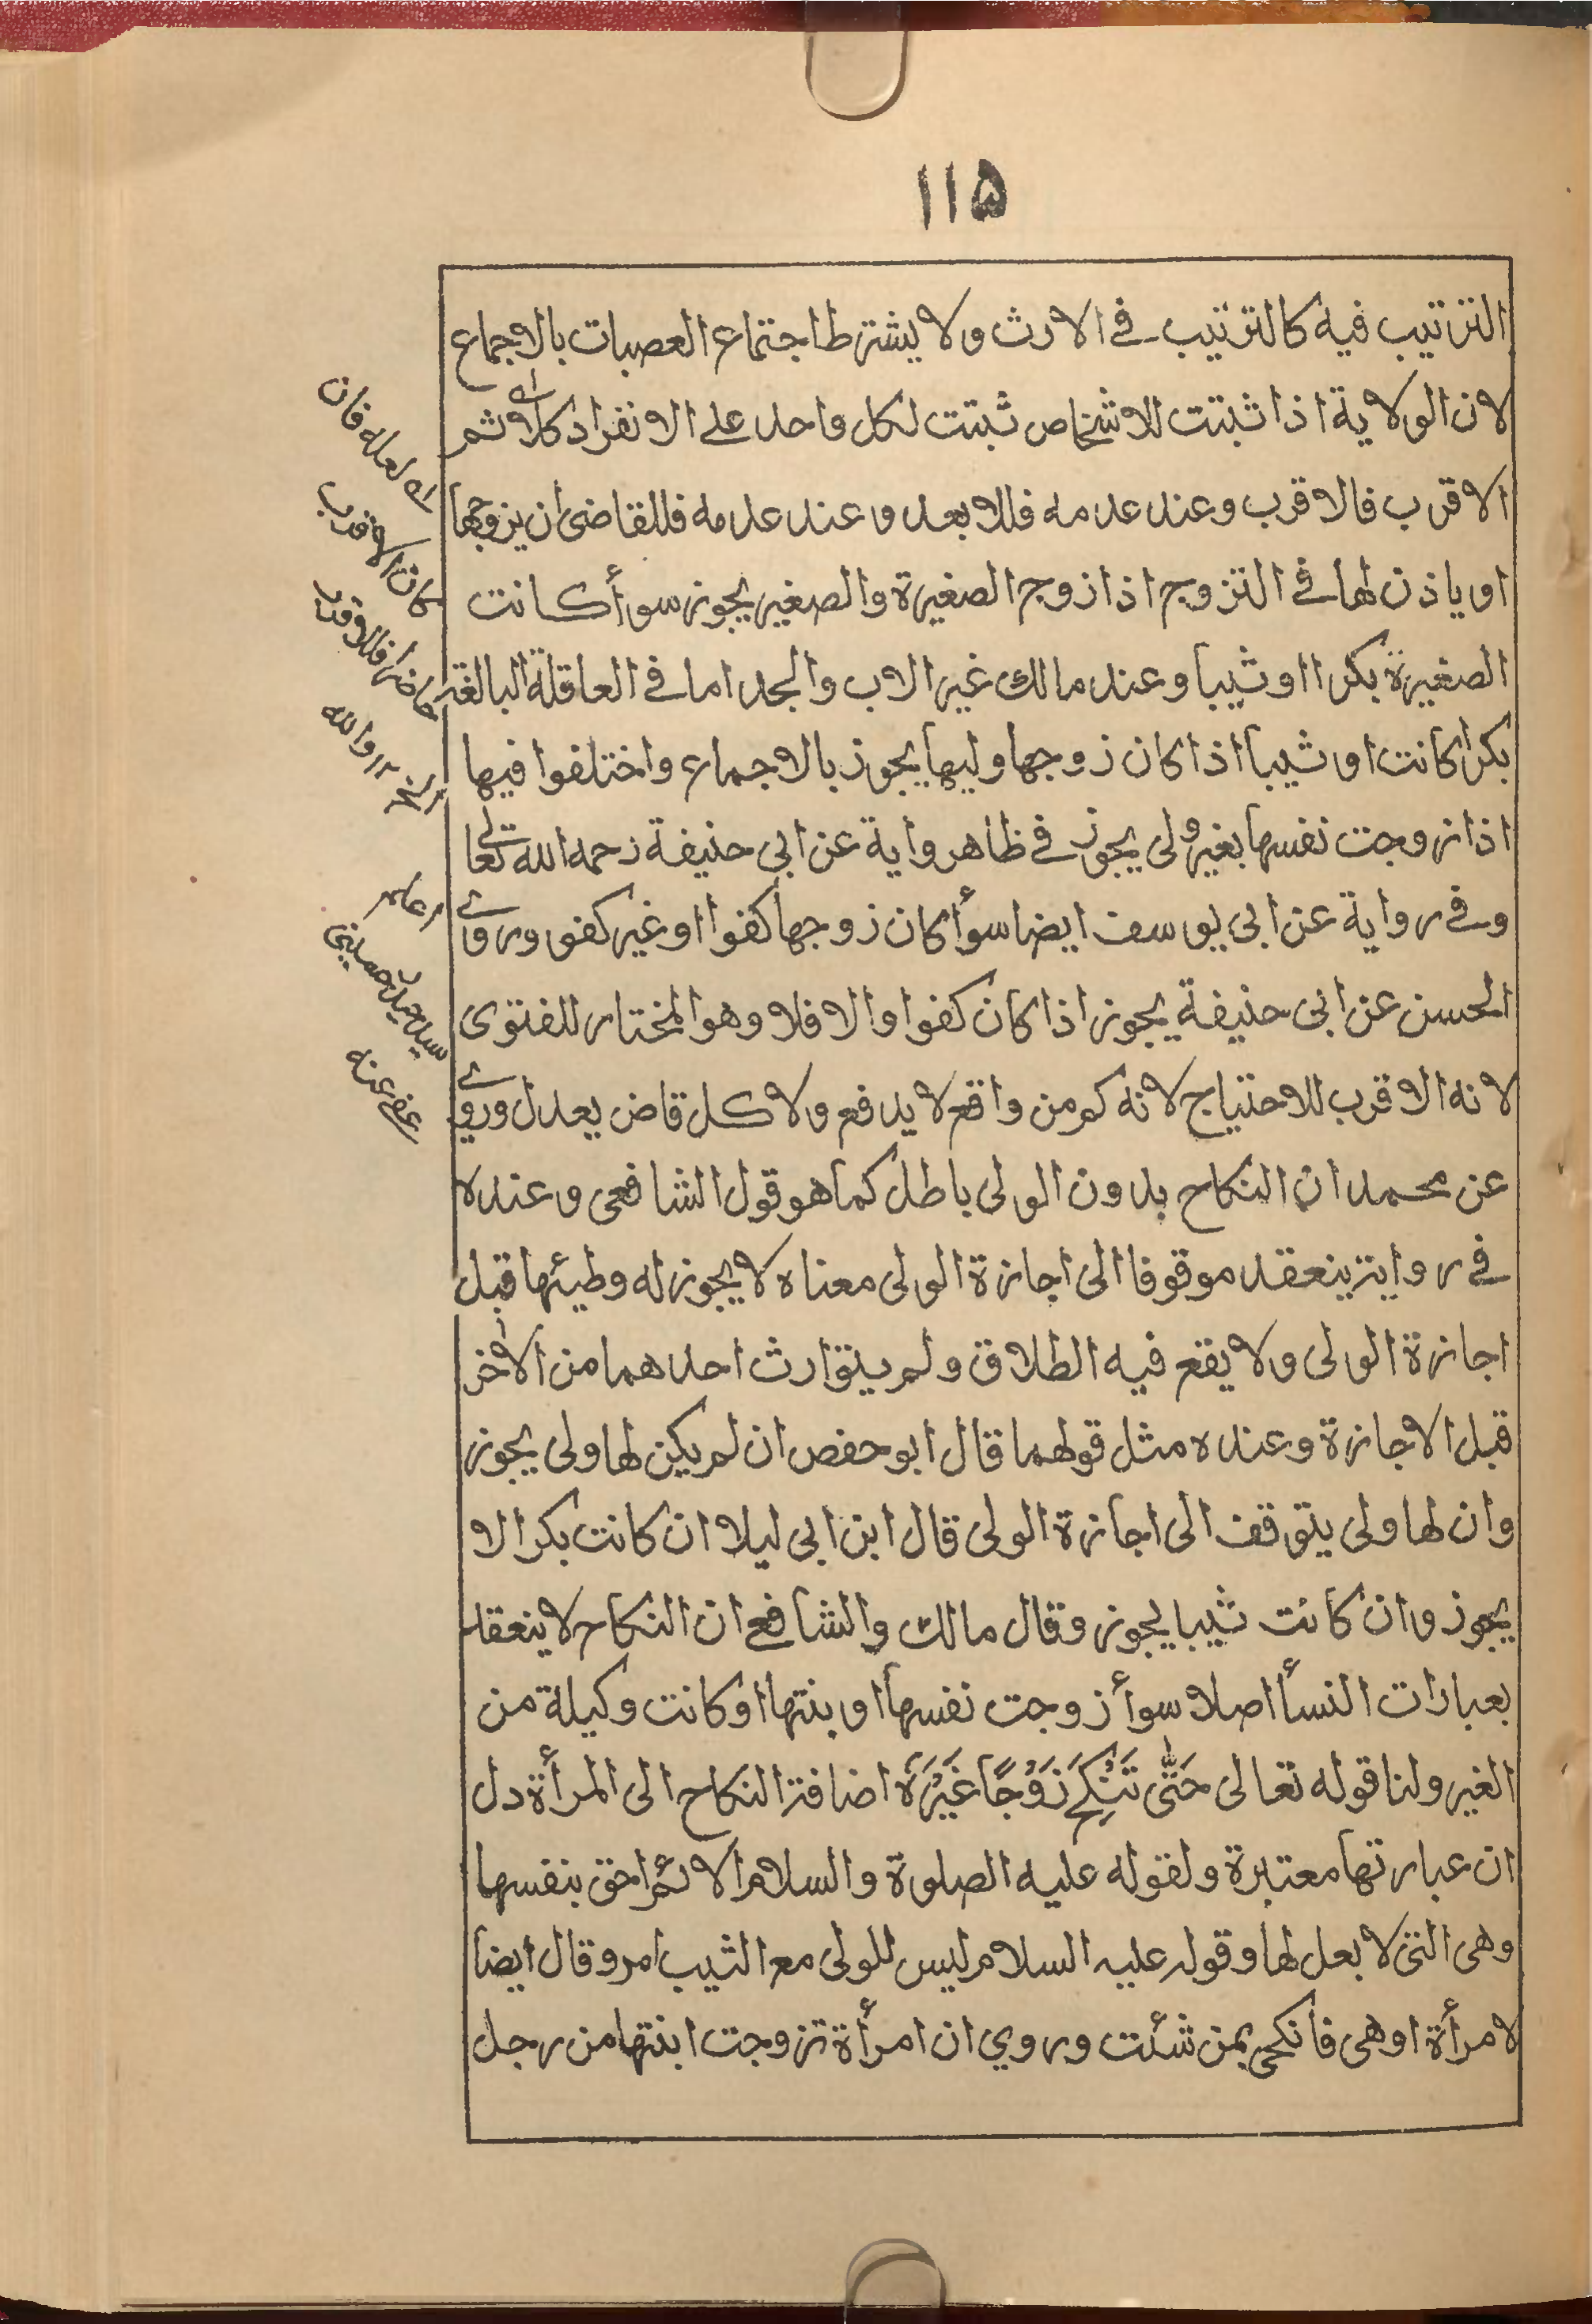 ١١٥
الترتيب فيه كالترتيب في الارث ولا يشترط اجتماع العصبات بالاجماع
لان الولاية اذا ثبتت للاشخاص ثبتت لكل واحد على الانفراد كملا ثم
الاقرب فالاقرب وعند عدمه فللابعد وعند عدمه فللقاضى ان يزوجها
او ياذن لها في التزوج اذا زوج الصغيرة والصغير يجوز سوأ كانت
الصغيرة بكرا او ثيبا وعند مالك غير الاب والجد اما في العاقلة البالغة
بكرا كانت او ثيبا اذا كان زوجها وليها يجوز بالاجماع واختلفوا فيها
اذا زوجت نفسها بغير ولى يجوز في ظاهر رواية عن ابى حنيفة رحمه الله تعالى
وفي رواية عن ابى يوسف ايضا سوأ كان زوجها كفوا او غير كفو وروى
الحسن عن ابى حنيفة يجوز اذا كان كفوا والا فلا وهو المختار للفتوى
لانه الاقرب للاحتياج لانه كم من واقع لا يدفع ولا كل قاض يعدل وروى
عن محمد ان النكاح بدون الولى باطل كما هو قول الشافعى وعنده
في رواية ينعقد موقوفا الى اجازة الولى معناه لا يجوز له وطيئها قبل
اجازة الولى ولا يقع فيه الطلاق ولم يتوارث احدهما من الاخر
قبل الاجازة وعنده مثل قولهما قال ابو حفص ان لم يكن لها ولى يجوز
وان لها ولى يتوقف الى اجازة الولى قال ابن ابى ليلا ان كانت بكرا لا
يجوز وان كانت ثيبا يجوز وقال مالك والشافع ان النكاح لا ينعقد
بعبارات النسأ اصلا سوأ زوجت نفسها او بنتها او كانت وكيلة من
الغير ولنا قوله تعالى حَتّٰى تَنْكِحَ زَوْجًا غَيْرَهٗ اضافة النكاح الى المرأة دل
ان عبارتها معتبرة ولقوله عليه الصلوة والسلام الائم احق بنفسها
وهى التى لا بعل لها وقوله عليه السلام ليس للولى مع الثيب امر وقال ايضا
لامرأة اوهى فانكحى بمن شئت وروي ان امرأة تزوجت ابنتها من رجل
له لعله فان
كان الاقرب
حاضرا فللاقرب
الخ ١٢ والله
اعلم
عفى عنه